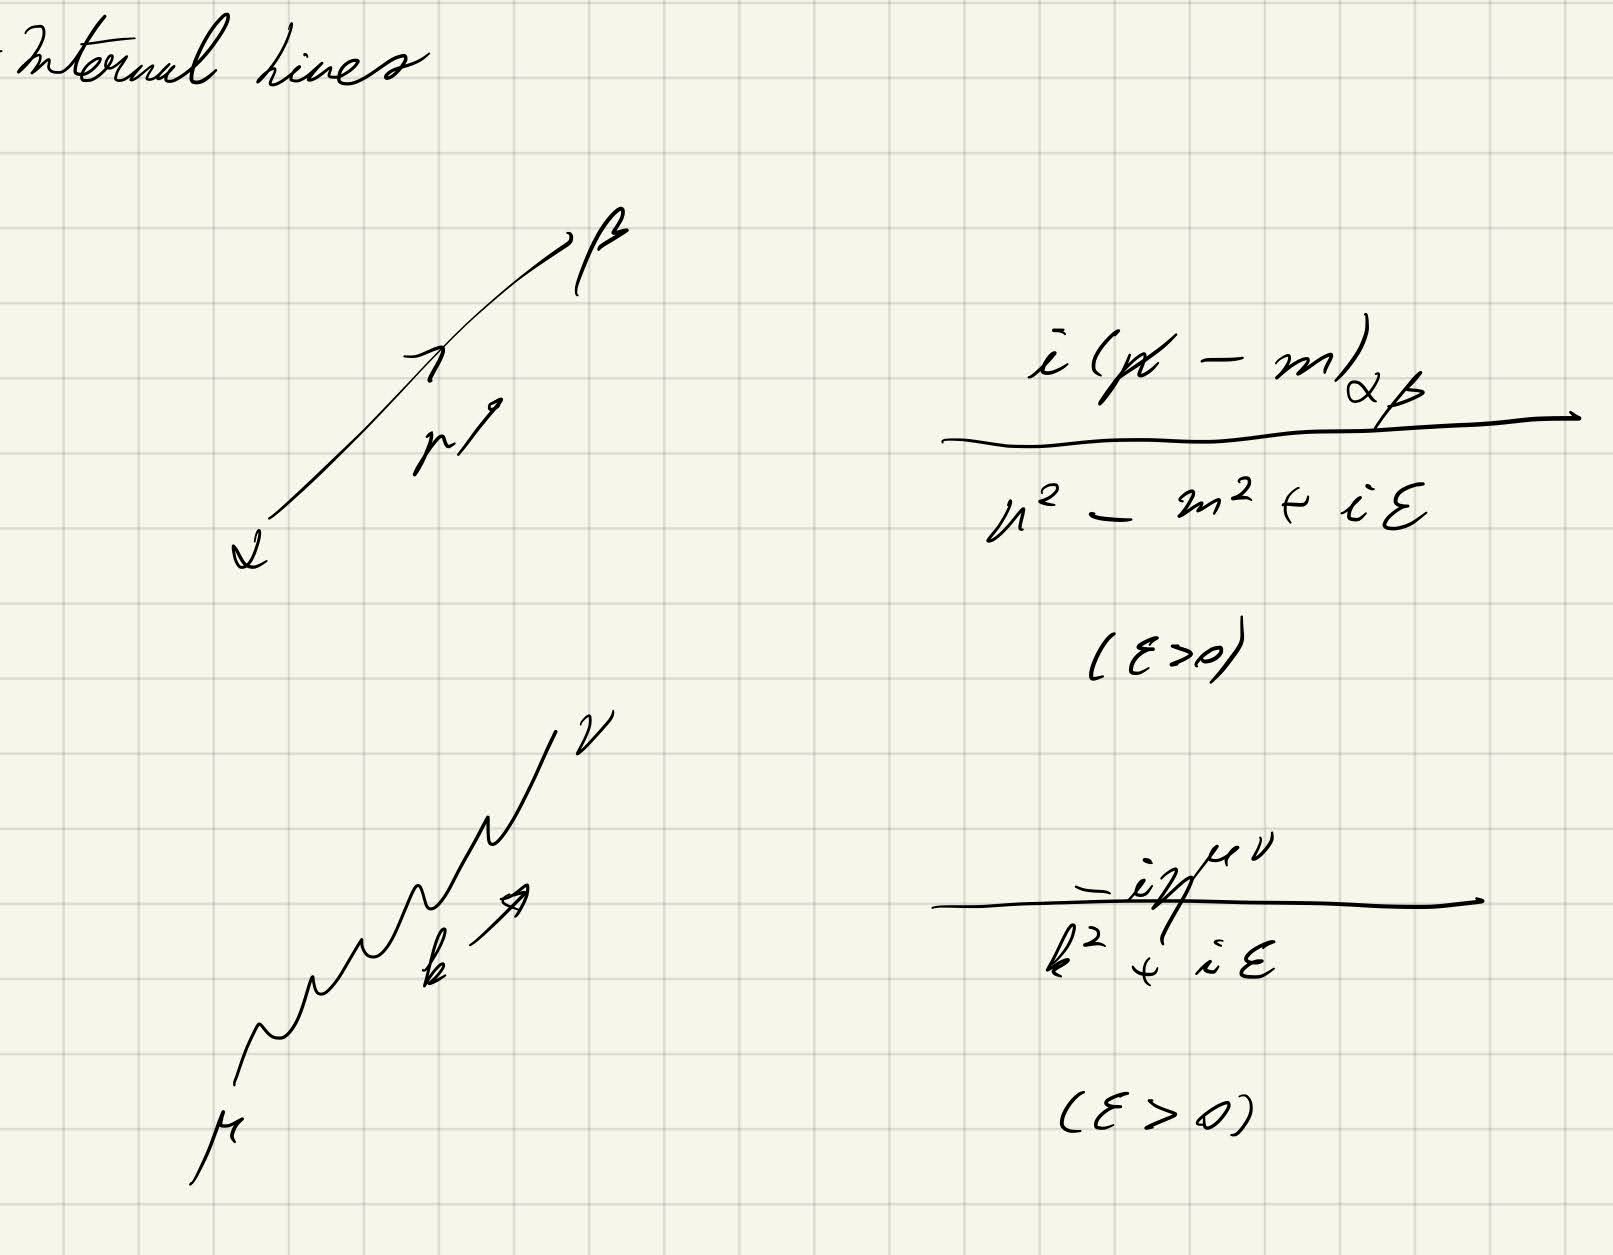 Internal Lines
β
p
α
i(p̸ - m)αβ
p² - m² + iε
(ε>0)
ν
k
μ
-iη^μν
k² + iε
(ε>0)